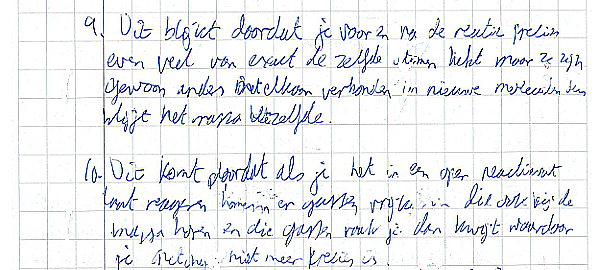 9. Dit blijkt doordat je voor en na de reactie precies
even veel van exact de zelfde atomen hebt maar ze zijn
gewoon anders met elkaar verbonden in nieuwe moleculen dus
blijft het massa hetzelfde.
10. Dit komt doordat als je het in een open reactievat
laat reageren komen er gassen vrij in die ook bij de
massa horen en die gassen raak je dan kwijt waardoor
je niet meer precies is